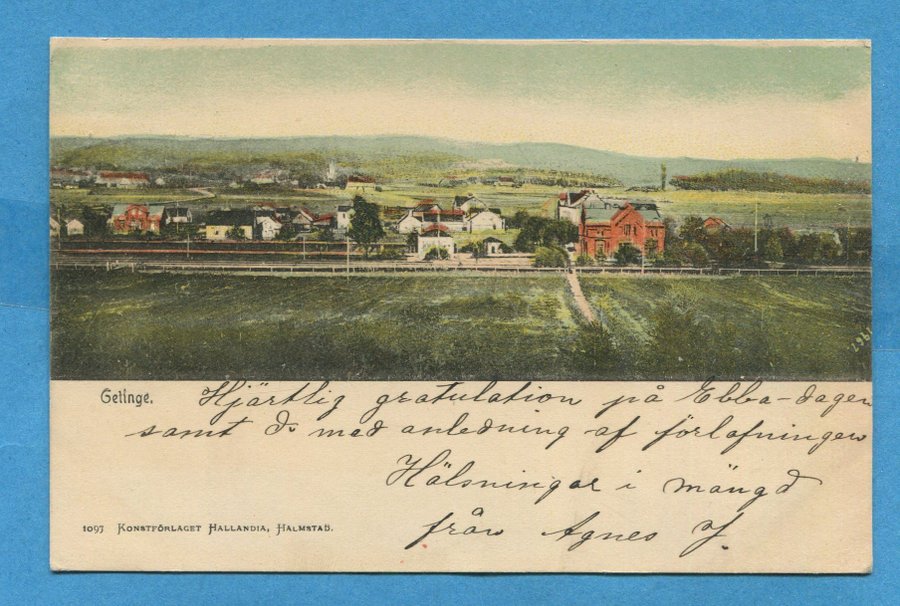 Getinge.
Hjärtlig gratulation på Ebba-dagen
samt do med anledning af förlofningen
Hälsningar i mängd
från Agnes
1097 Konstförlaget Hallandia, Halmstad.